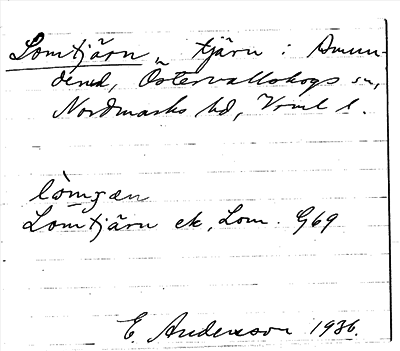 Lomtjärn, tjärn i Amun-
dened, Östervallskogs sn,
Nordmarks hd, Vrml l.
lòmʒæn
Lomtjärn ek, Lom. G69
E. Anderson 1936.